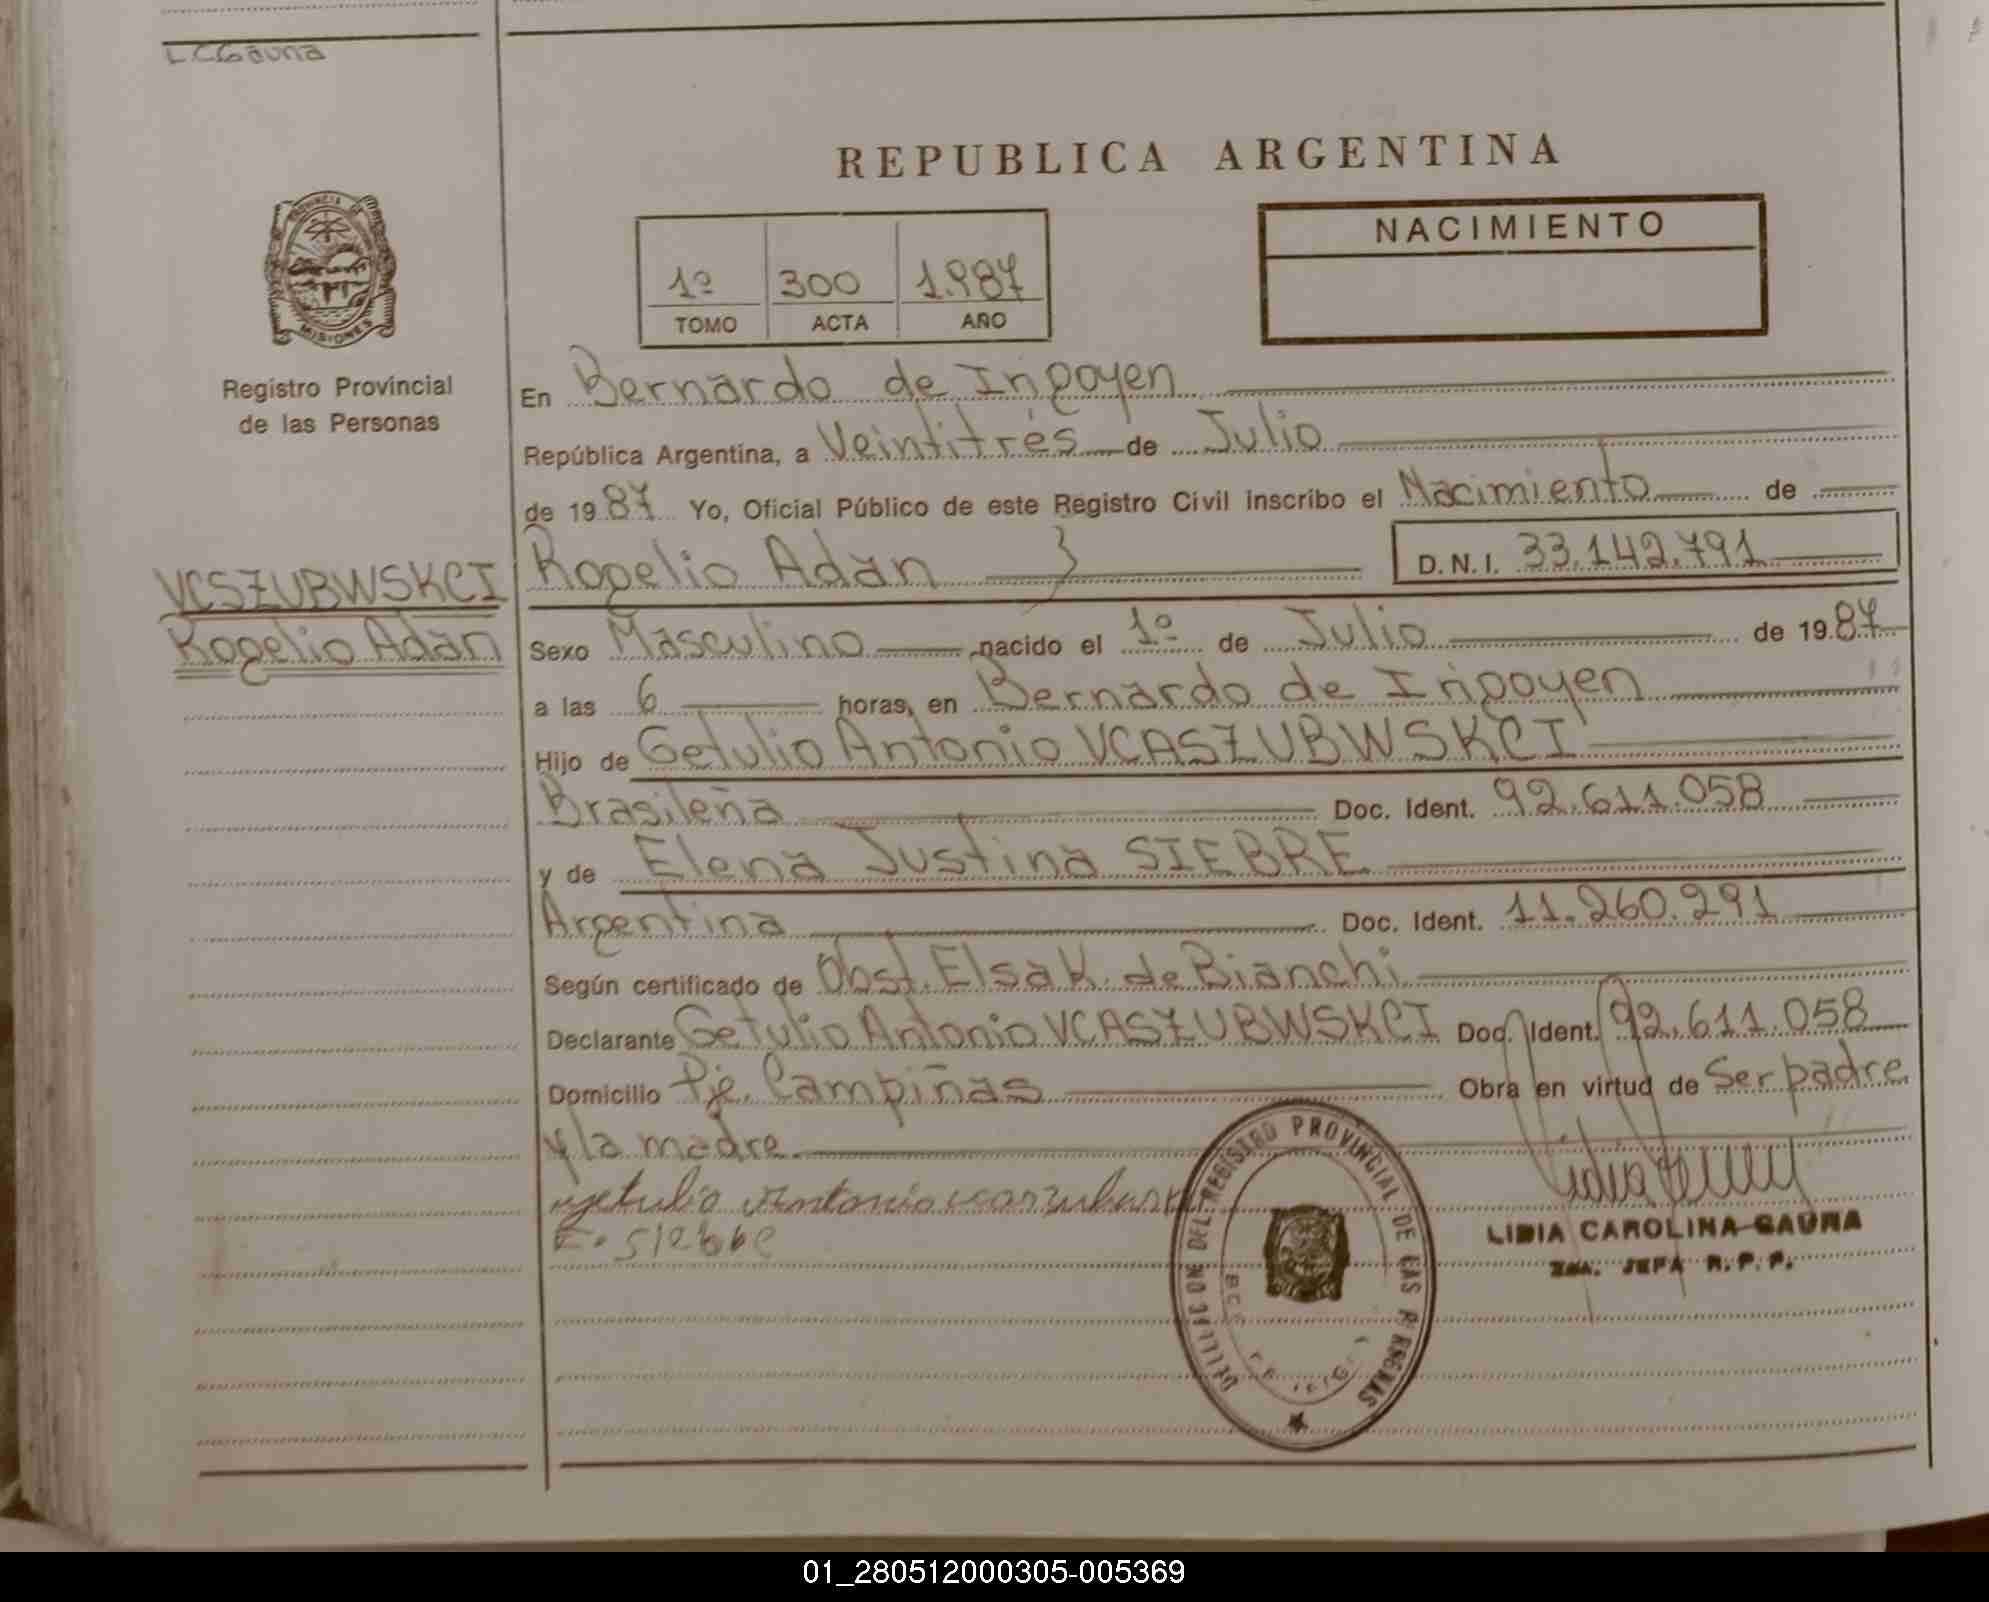 L.C.Gauna
REPUBLICA ARGENTINA
NACIMIENTO
1º 300 1.987
TOMO ACTA AÑO
PROVINCIA DE
MISIONES
Registro Provincial
de las Personas
En Bernardo de Irigoyen
República Argentina, a Veintitrés de Julio
de 1987 Yo, Oficial Público de este Registro Civil inscribo el Nacimiento de
VCSZUBWSKCI
Rogelio Adán
Rogelio Adán D.N.I. 33.142.791
Sexo Masculino nacido el 1º de Julio de 1987
a las 6 horas, en Bernardo de Irigoyen
Hijo de Getulio Antonio VCASZUBWSKCI
Brasileña Doc. Ident. 92.611.058
y de Elena Justina SIEBRE
Argentina Doc. Ident. 11.260.291
Según certificado de Obst. Elsa K. de Bianchi
Declarante Getulio Antonio VCASZUBWSKCI Doc. Ident. 92.611.058
Domicilio Pje. Campiñas Obra en virtud de Ser padre
y la madre
Getulio Antonio
E. Siebre
DEL REGISTRO PROVINCIAL DE LAS PERSONAS
LIDIA CAROLINA GAUNA
JEFA R.P.P.
01_280512000305-005369